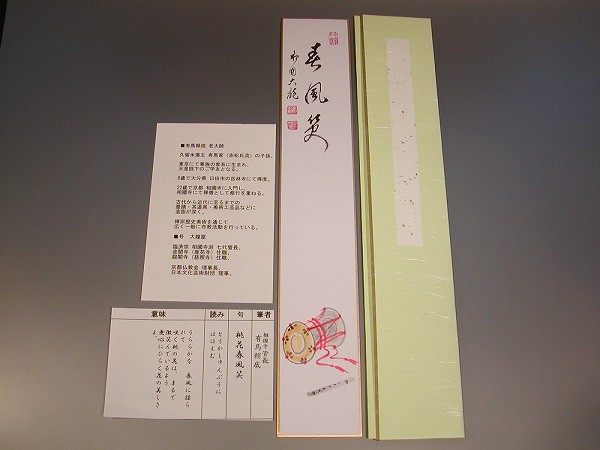 春風笑
相国大龍
■有馬頼底 老大師
久留米藩主 有馬家(赤松氏流)の子孫。
東京にて華族の家系に生まれ、
天皇陛下のご学友となる。
8歳で大分県 日田市の岳林寺にて得度。
22歳で京都 相國寺に入門し、
相國寺にて禅僧として修行を重ねる。
古代から近代に至るまでの
墨蹟・茶道具・美術工芸品などに
造詣が深く、
禅宗歴史美術を通じて
広く一般に布教活動を行っている。
■号 大龍窟
臨済宗 相國寺派 七代管長。
金閣寺(鹿苑寺)住職、
銀閣寺(慈照寺)住職、
京都仏教会 理事長、
日本文化芸術財団 理事。
筆者
相国寺管長
有馬頼底
句
桃花春風笑
読み
とうかしゅんぷうに
ほほえむ
意味
うららかな 春風に揺ら
れて
咲く桃の花は、まるで
微笑んでいるよう
無心にひらく花の美しさ
よ。